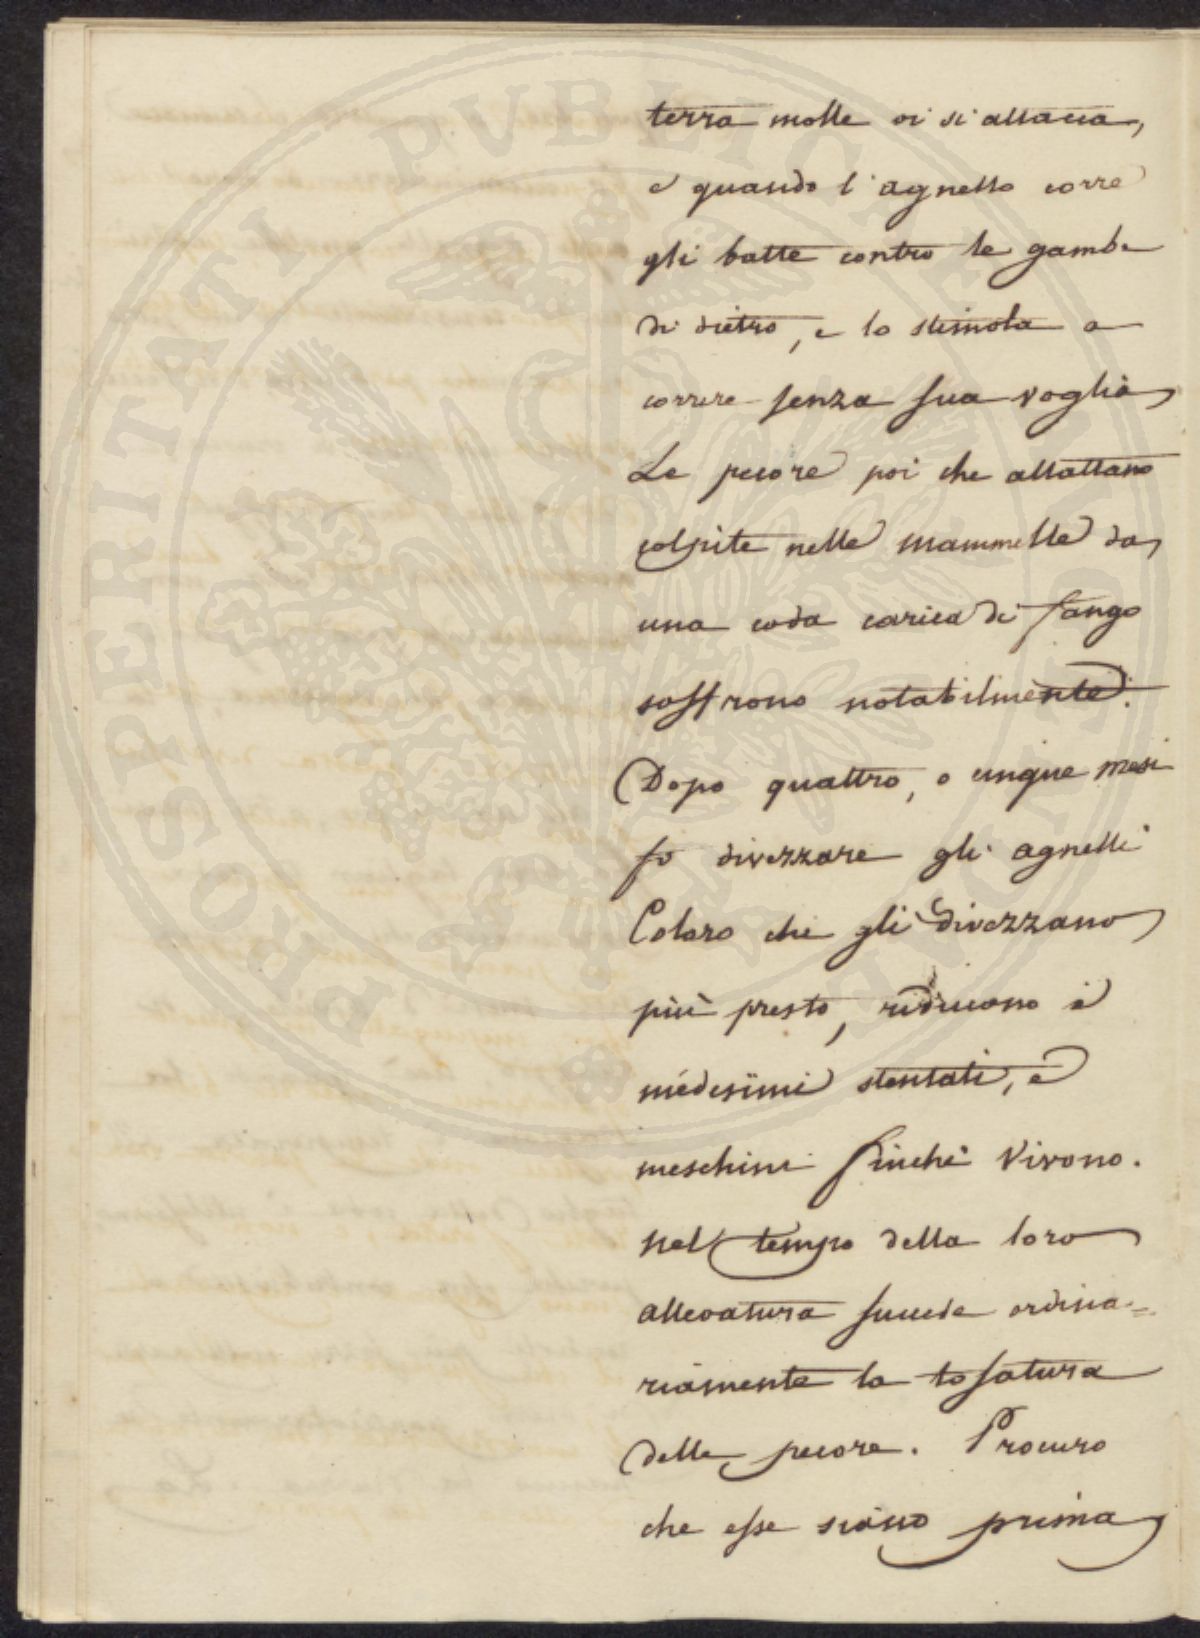 terra molle vi si attacca,
e quando l'agnello corre
gli batte contro le gambe
di dietro, e lo stimola a
correre senza sua voglia,
Le pecore poi che allattano
colpite nelle mammelle da
una coda carica di fango
soffrono notabilmente.
Dopo quattro, o cinque mesi
fò divezzare gli agnelli
Coloro che gli divezzano
più presto, riducono i
medesimi stentati, e
meschini finchè vivono.
nel tempo della loro
allevatura succede ordina=
riamente la tosatura
delle pecore. Procuro
che esse siano prima
PROSPERITATI PVBLICAE